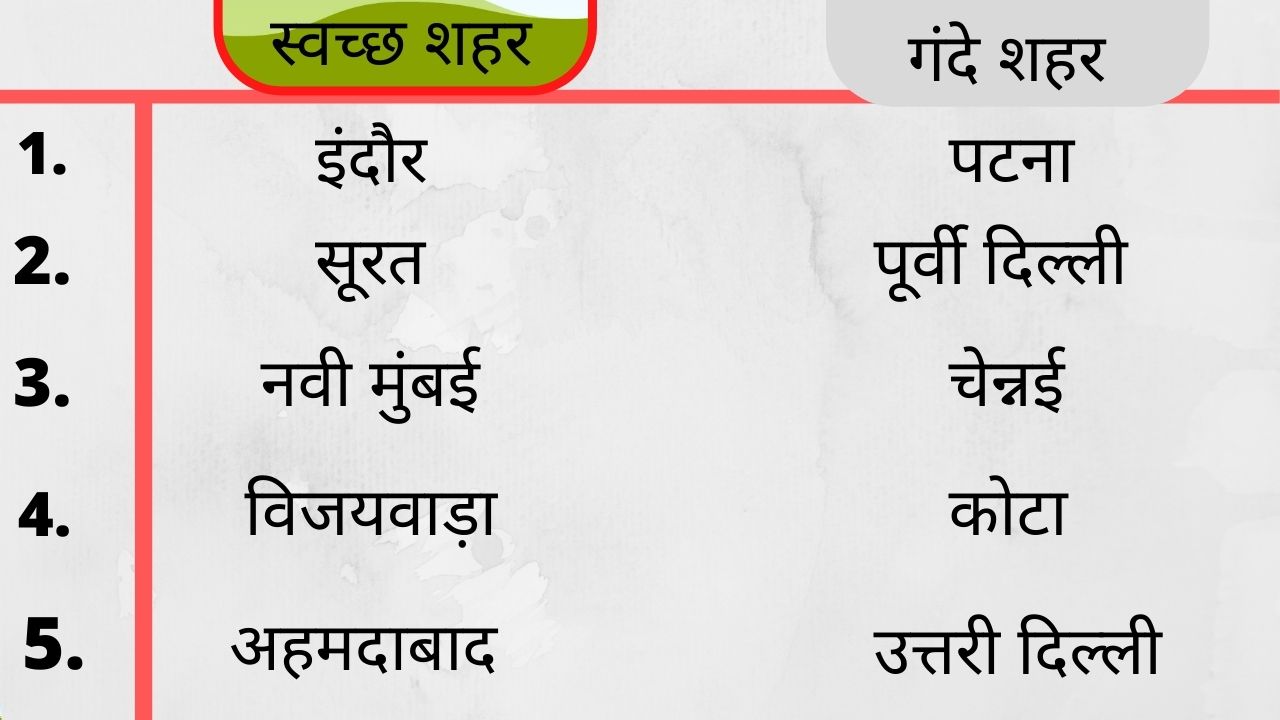 स्वच्छ शहर गंदे शहर
1. इंदौर पटना
2. सूरत पूर्वी दिल्ली
3. नवी मुंबई चेन्नई
4. विजयवाड़ा कोटा
5. अहमदाबाद उत्तरी दिल्ली